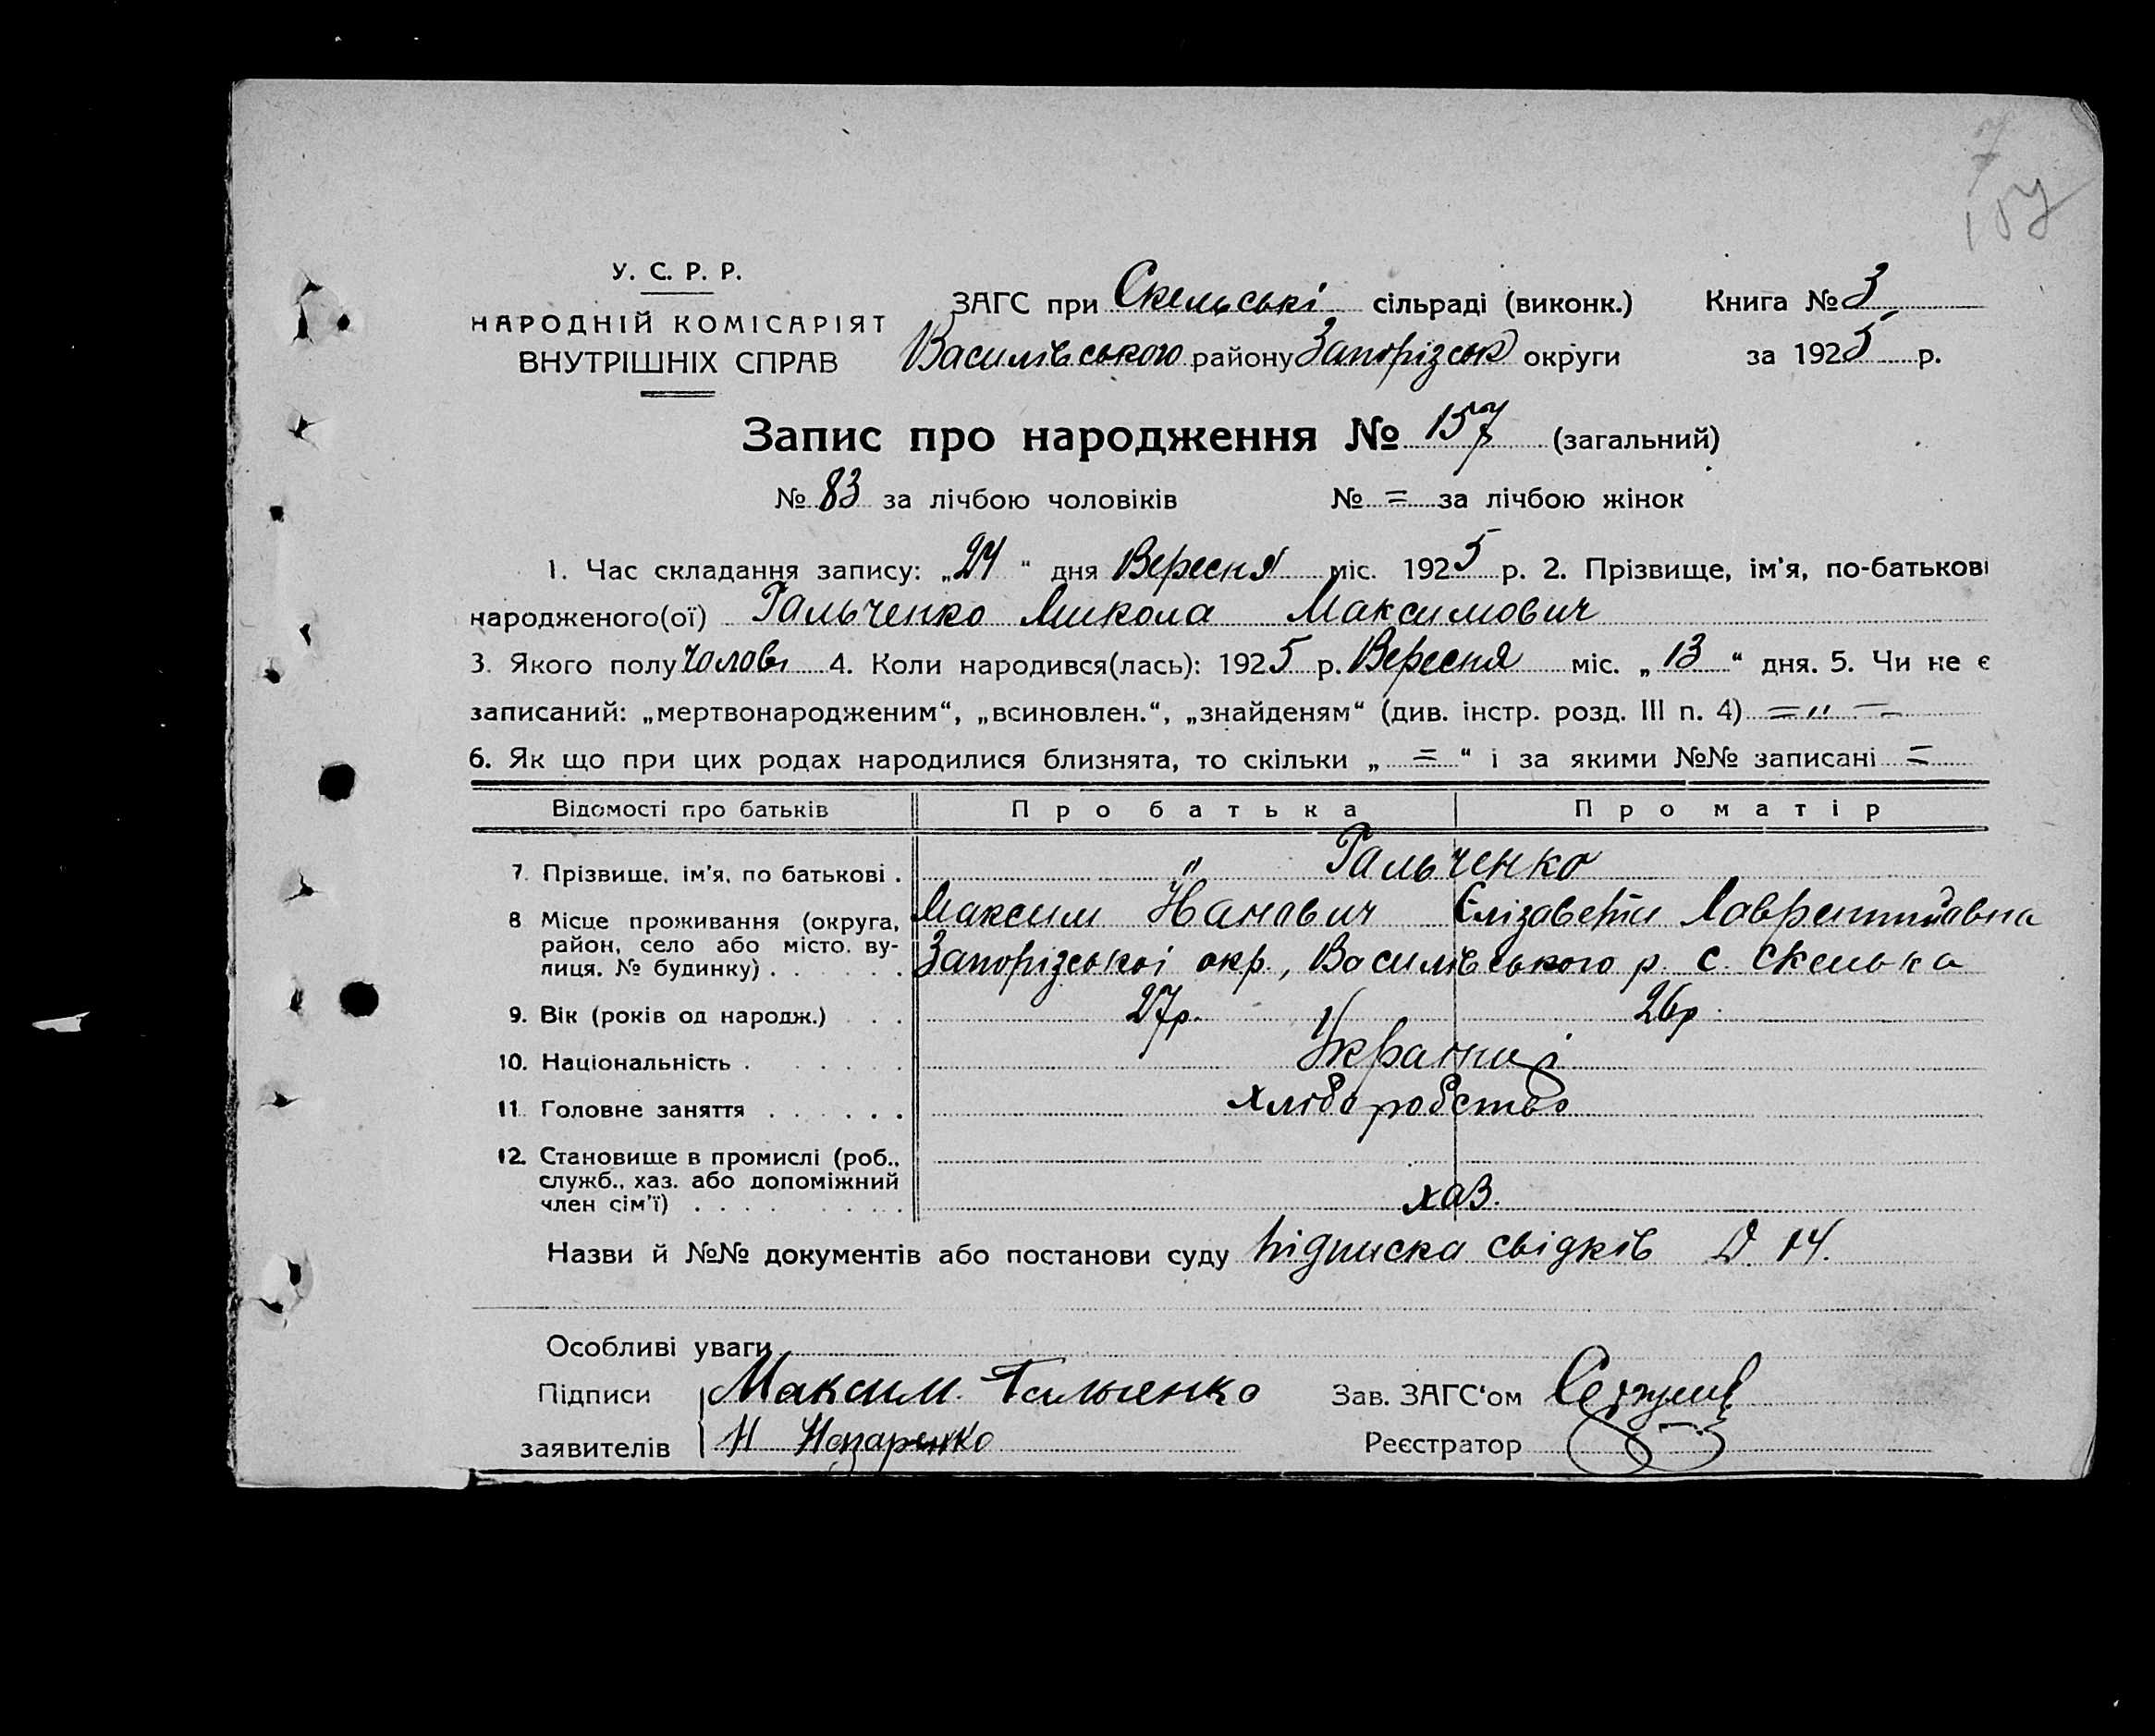 7
157
У. С. Р. Р.
НАРОДНІЙ КОМІСАРІЯТ
ВНУТРІШНІХ СПРАВ
ЗАГС при Скельські сільраді (виконк.) Книга № 3
Василівського району Запорізськ округи за 1925 р.
Запис про народження № 157 (загальний)
№ 83 за лічбою чоловіків № = за лічбою жінок
1. Час складання запису: „24“ дня Вересня міс. 1925 р. 2. Прізвище, ім'я, по-батькові
народженого(ої) Гальченко Микола Максимович
3. Якого полу чолові 4. Коли народився(лась): 1925 р. Вересня міс. „13“ дня. 5. Чи не є
записаний: „мертвонародженим“, „всиновлен.“, „знайденям“ (див. інстр. розд. III п. 4) = „ =
6. Як що при цих родах народилися близнята, то скільки „ = “ і за якими №№ записані =
Відомості про батьків Про батька Про матір
7. Прізвище, ім'я, по батькові . " Гальченко
Максим Єлізавета
8 Місце проживання (округа, район, село або місто. вулиця. № будинку) . Запорізської окр., Василівського р. с. Скелька
9. Вік (років од народж.) . . . 27р. 26р.
10. Національність . Українці
11. Головне заняття . . . . . . хліборобство
12. Становище в промислі (роб., служб., хаз. або допоміжний член сім'ї) . . . . хаз.
Назви й №№ документів або постанови суду підписка свідків D 14.
Особливі уваги
Підписи Максим Гальченко Зав. ЗАГС'ом
заявителів Н Назаренко Реєстратор